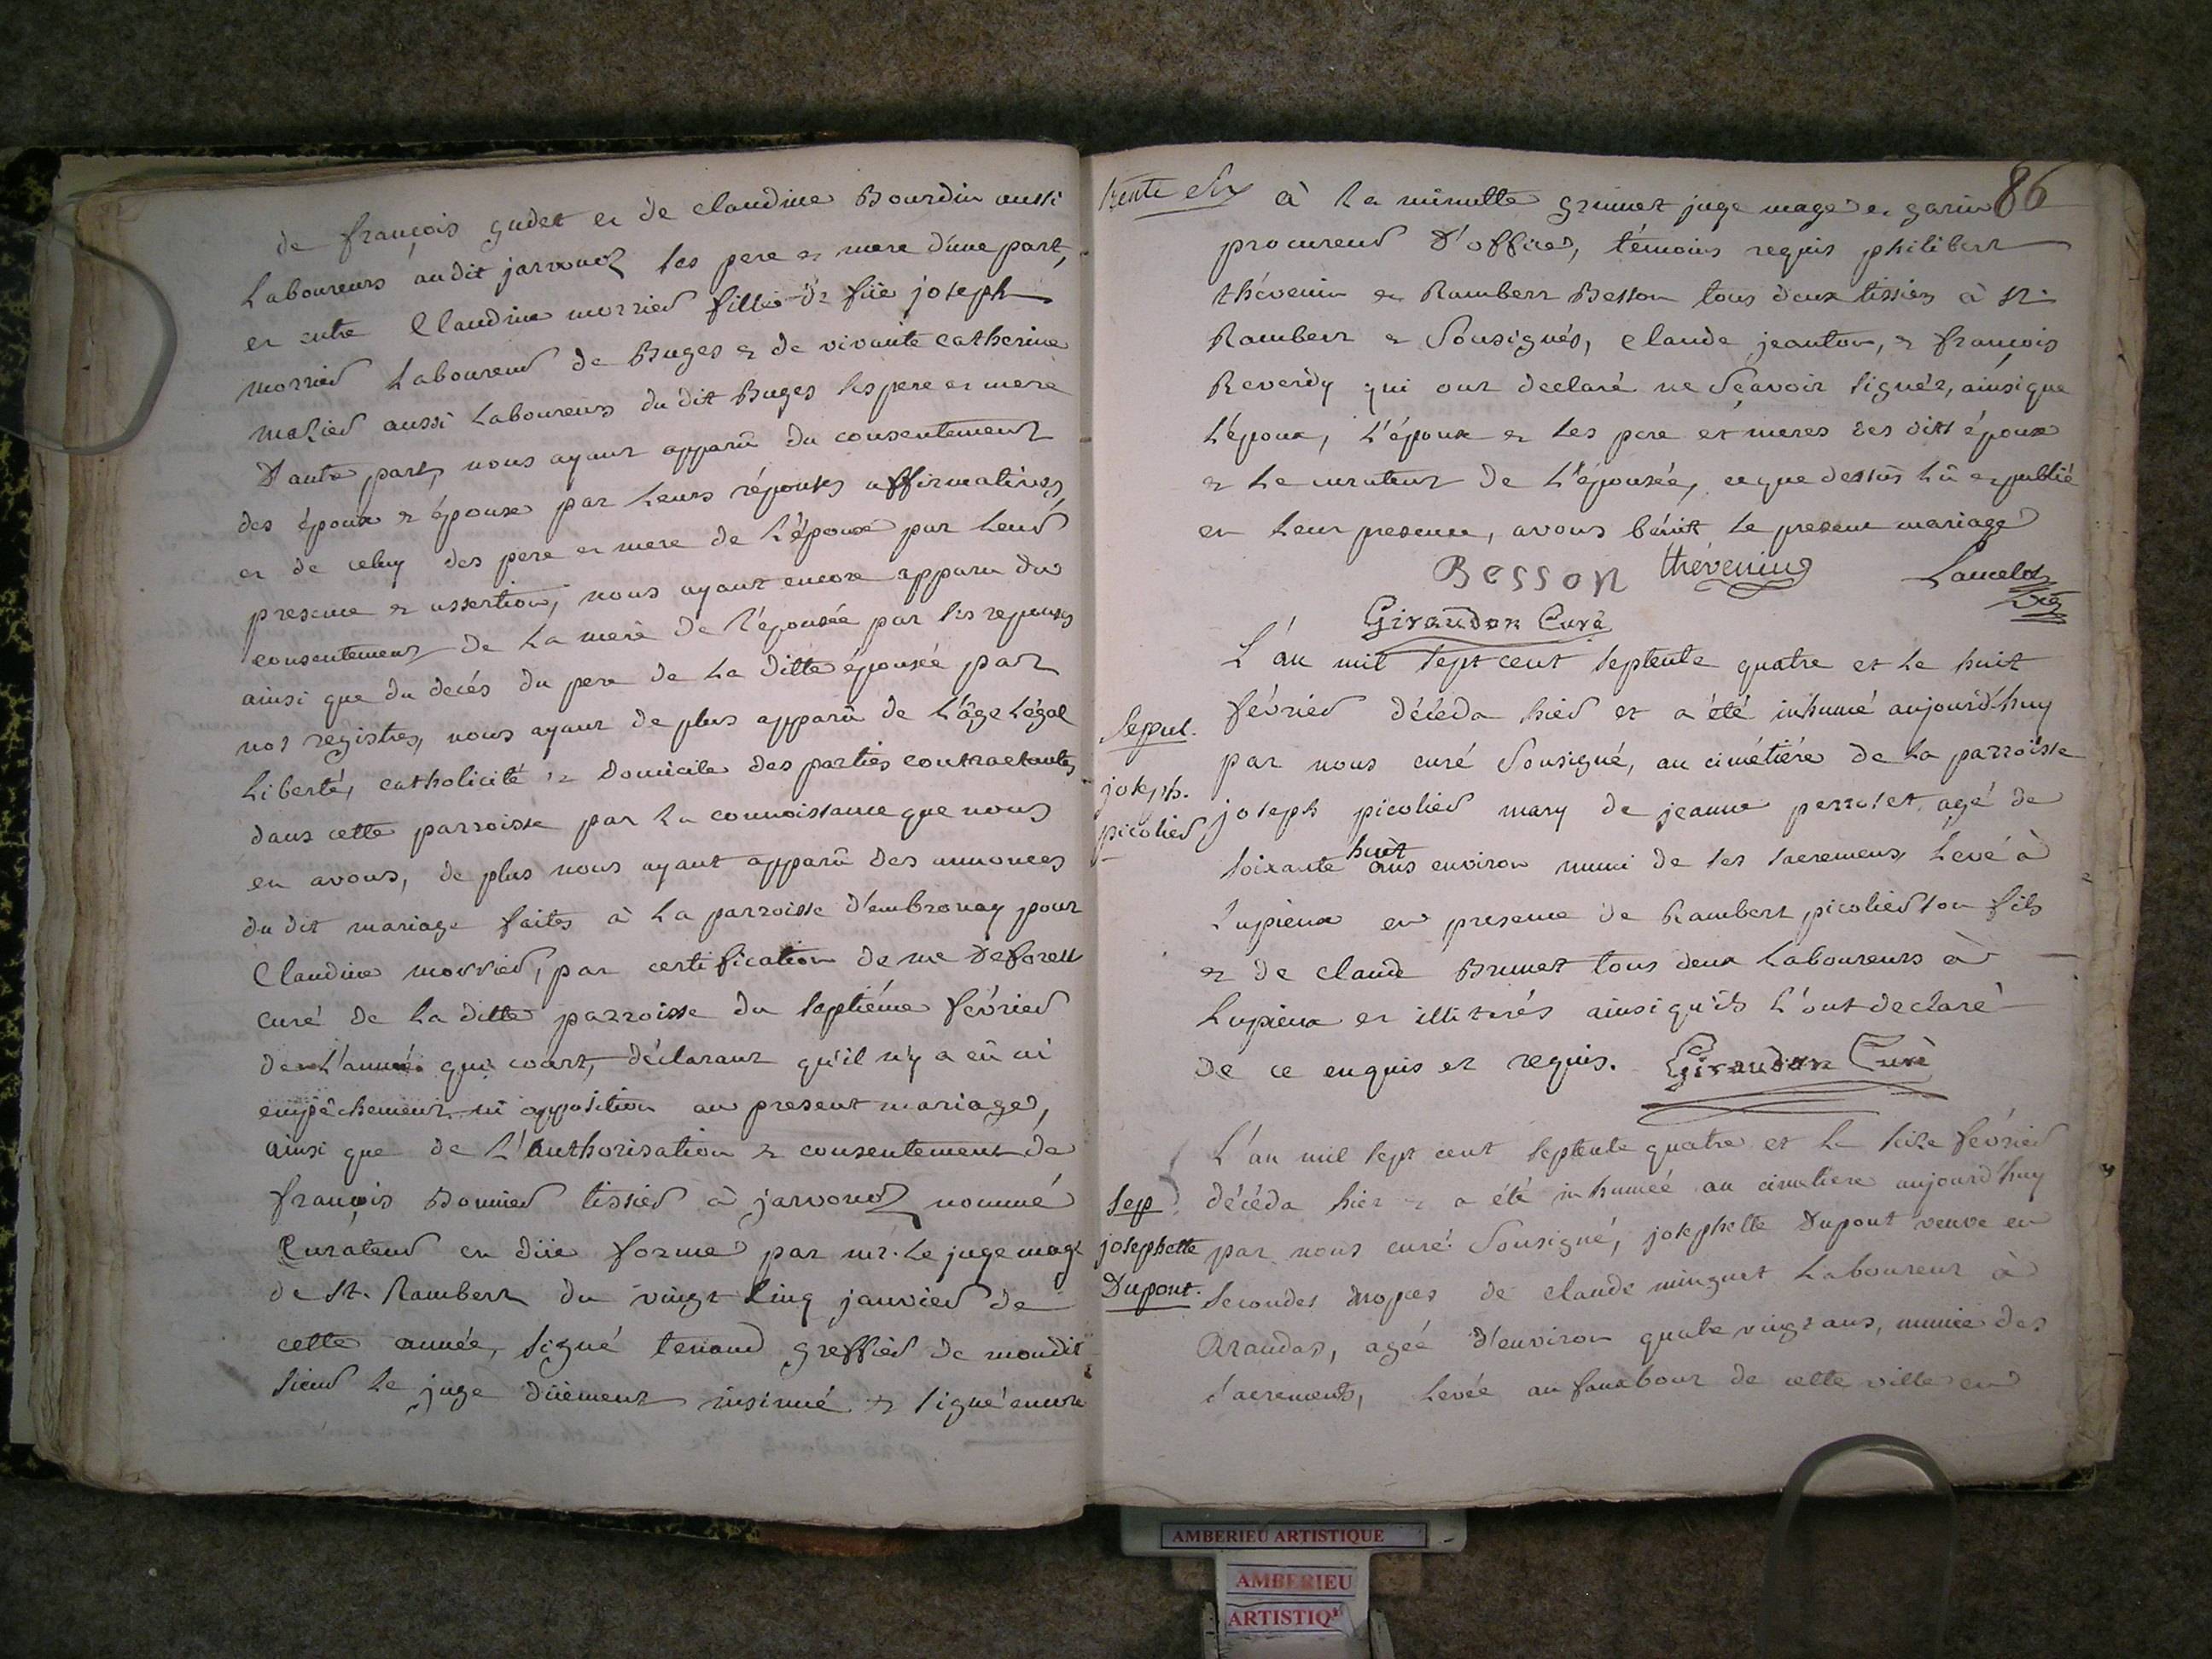 de françois gudet et de claudine Bourdin aussi
Laboureurs audit jarvonoz ses pere et mere d'une part,
et entre Claudine morrier fille de fûe joseph
morrier Laboureur de Buges et de vivante catherine
mazier aussi Laboureurs du dit Buges ses pere et mere
D'autre part, nous ayant apparû du consentement
des époux et épouse par leurs réponses affirmatives,
et de celuy des pere et mere de l'époux par leur
presence et assertion, nous ayant encore apparu du
consentement de la mere de l'épousée par ses reponses
ainsi que du decés du pere de la ditte épousée par
nos registres, nous ayant de plus apparû de l'âge légal
Liberté, catholicité et domicile des parties contractantes
dans cette parroisse par la connoissance que nous
en avons, de plus nous ayant apparû des annonces
du dit mariage faites à la parroisse d'embronay pour
Claudine morrier, par certification de me Deforest
curé de la ditte parroisse du septiéme février
de l'année qui court, déclarant qu'il n'y a eû ni
empêchement ni opposition au present mariage,
ainsi que de l'authorisation et consentement de
françois Bonnier tissier à jarvonoz nommé
Curateur en dûe forme par mr. le juge mage
de St. Rambert du vingt cinq janvier de
cette année, signé tenand greffier de mondit
sieur le juge dûement insinué et signé encore
trente six à la minutte grumet juge mage et garin 86
procureur d'office, témoins requis philibert
thévenin et Rambert Besson tous deux tissiers à St.
Rambert et sousignés, claude jeanton, et françois
Reverdy qui ont declaré ne sçavoir signer, ainsi que
l'époux, l'épouse et les pere et meres des dits époux
et le curateur de l'épousée, ce que dessus lû et publié
en leur presence, avons bénit le present mariage
Besson thévening Lancelot
Giraudon Curé
L'an mil sept cent septente quatre et le huit
février décéda hier et a été inhumé aujourd'huy
Sepul. par nous curé sousigné, au cimétiére de la parroisse
joseph. picolier joseph picolier mary de jeanne perrozet agé de
soixante huit ans environ muni de ses sacremens levé à
Lupieux en presence de Rambert picolier son fils
et de claude Brunet tous deux laboureurs à
Lupieux et illiterés ainsi qu'ils l'ont declaré
de ce enquis et requis. Giraudon Curé
L'an mil sept cent septente quatre et le seize février
Sep. décéda hier et a été inhumée au cimetiere aujourd'huy
josephette par nous curé sousigné, josephette Dupont veuve en
Dupont. secondes nopces de claude minguet laboureur à
Arandas, agée d'environ quatre vingt ans, munie des
sacrements, levée au fauxbour de cette ville en
AMBERIEU ARTISTIQUE
AMBERIEU
ARTISTIQ